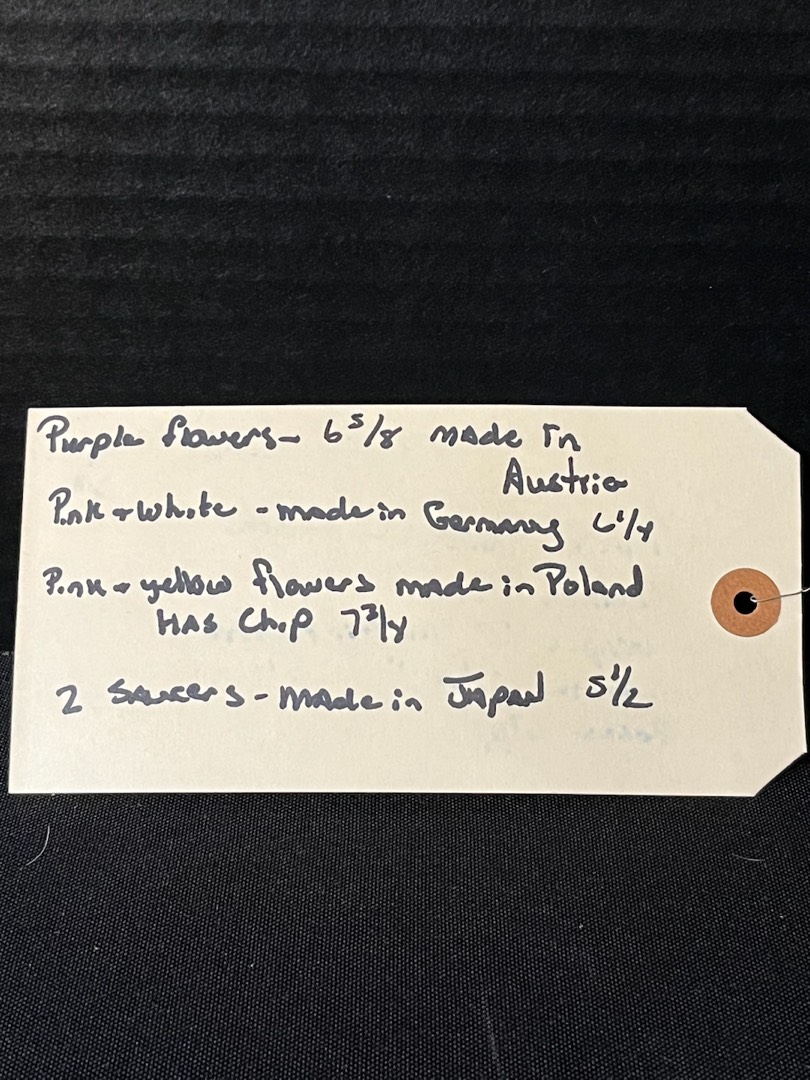 Purple flowers - 6 5/8 made in
Austria
Pink + white - made in Germany 6 1/4
Pink + yellow flowers made in Poland
HAS Chip 7 3/4
2 Saucers - made in Japan 5 1/2